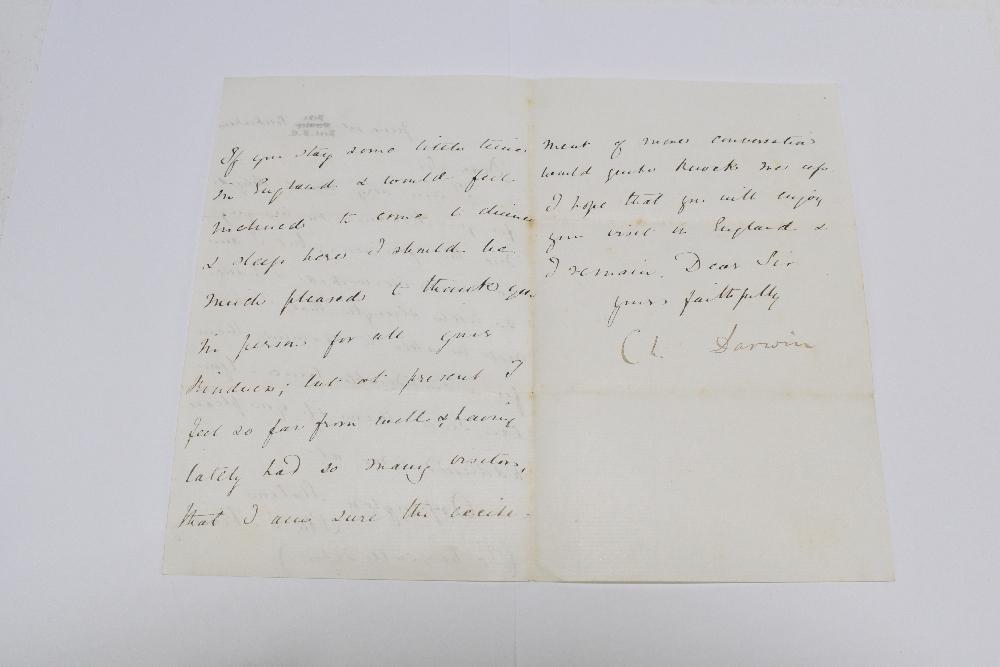 If you stay some little time
in England & would feel
inclined to come & dine
& sleep here I should be
much pleased to thank you
in person for all your
kindness; but at present I
feel so far from well & having
lately had so many visitors,
that I am sure the excite-
ment of more conversation
would quite knock me up
I hope that you will enjoy
your visit in England &
I remain, Dear Sir
yours faithfully
Ch. Darwin